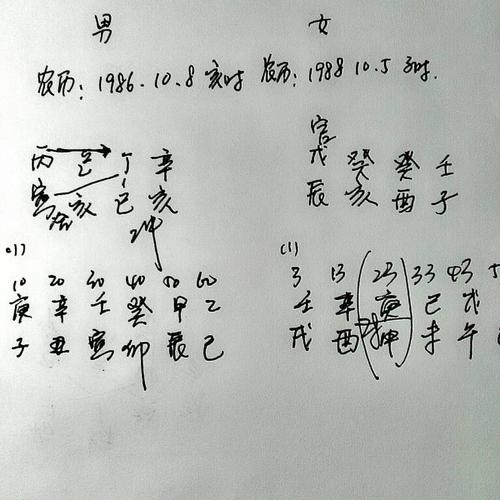 男 女
农历：1986.10.8 亥时 农历：1988 10.5 子时.
官
丙 己 丁 辛 戊 癸 癸 壬
寅 合 亥 巳 亥 辰 亥 酉 子
冲
(1) (1)
10 20 30 40 50 60 3 13 23 33 43 5
庚 辛 壬 癸 甲 乙 壬 辛 庚 己 戊
子 丑 寅 卯 辰 巳 戌 酉 申 未 午